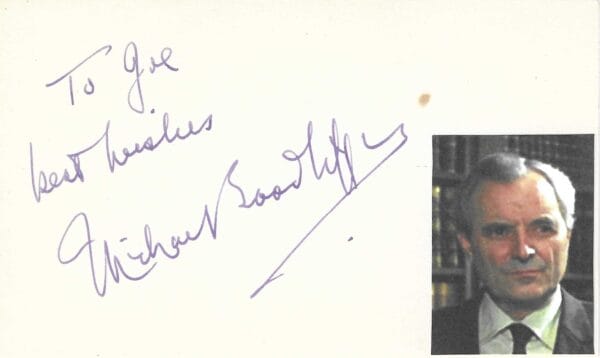 To Joe
best wishes
Michael Goodliffe